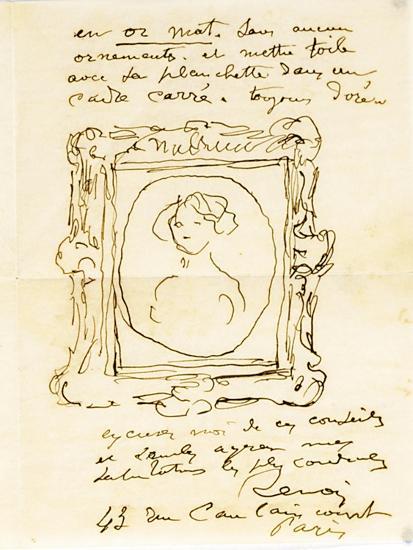 en or mat. Sans aucun
ornements. et mettre toile
avec sa planchette dans un
cadre carré. toujours dorée
excusez moi de ces conseils
et veuillez agréer mes
salutations les plus cordiales
Renoir
43 rue Caulaincourt
Paris